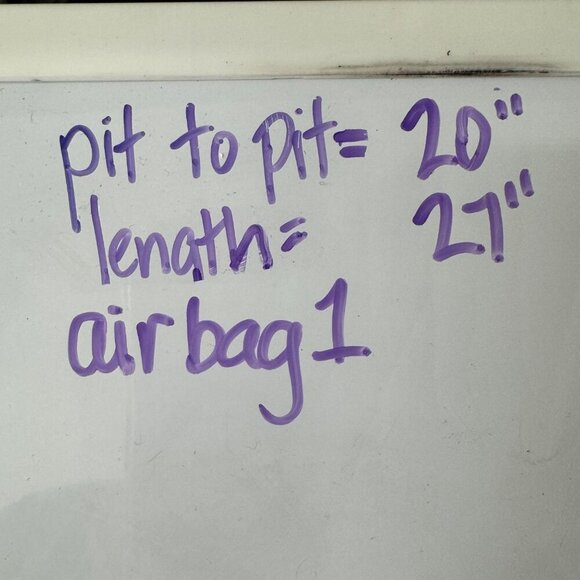 pit to pit= 20"
length= 27"
airbag1